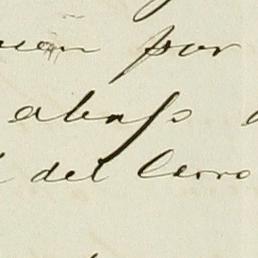 por
abajo
del Cerro